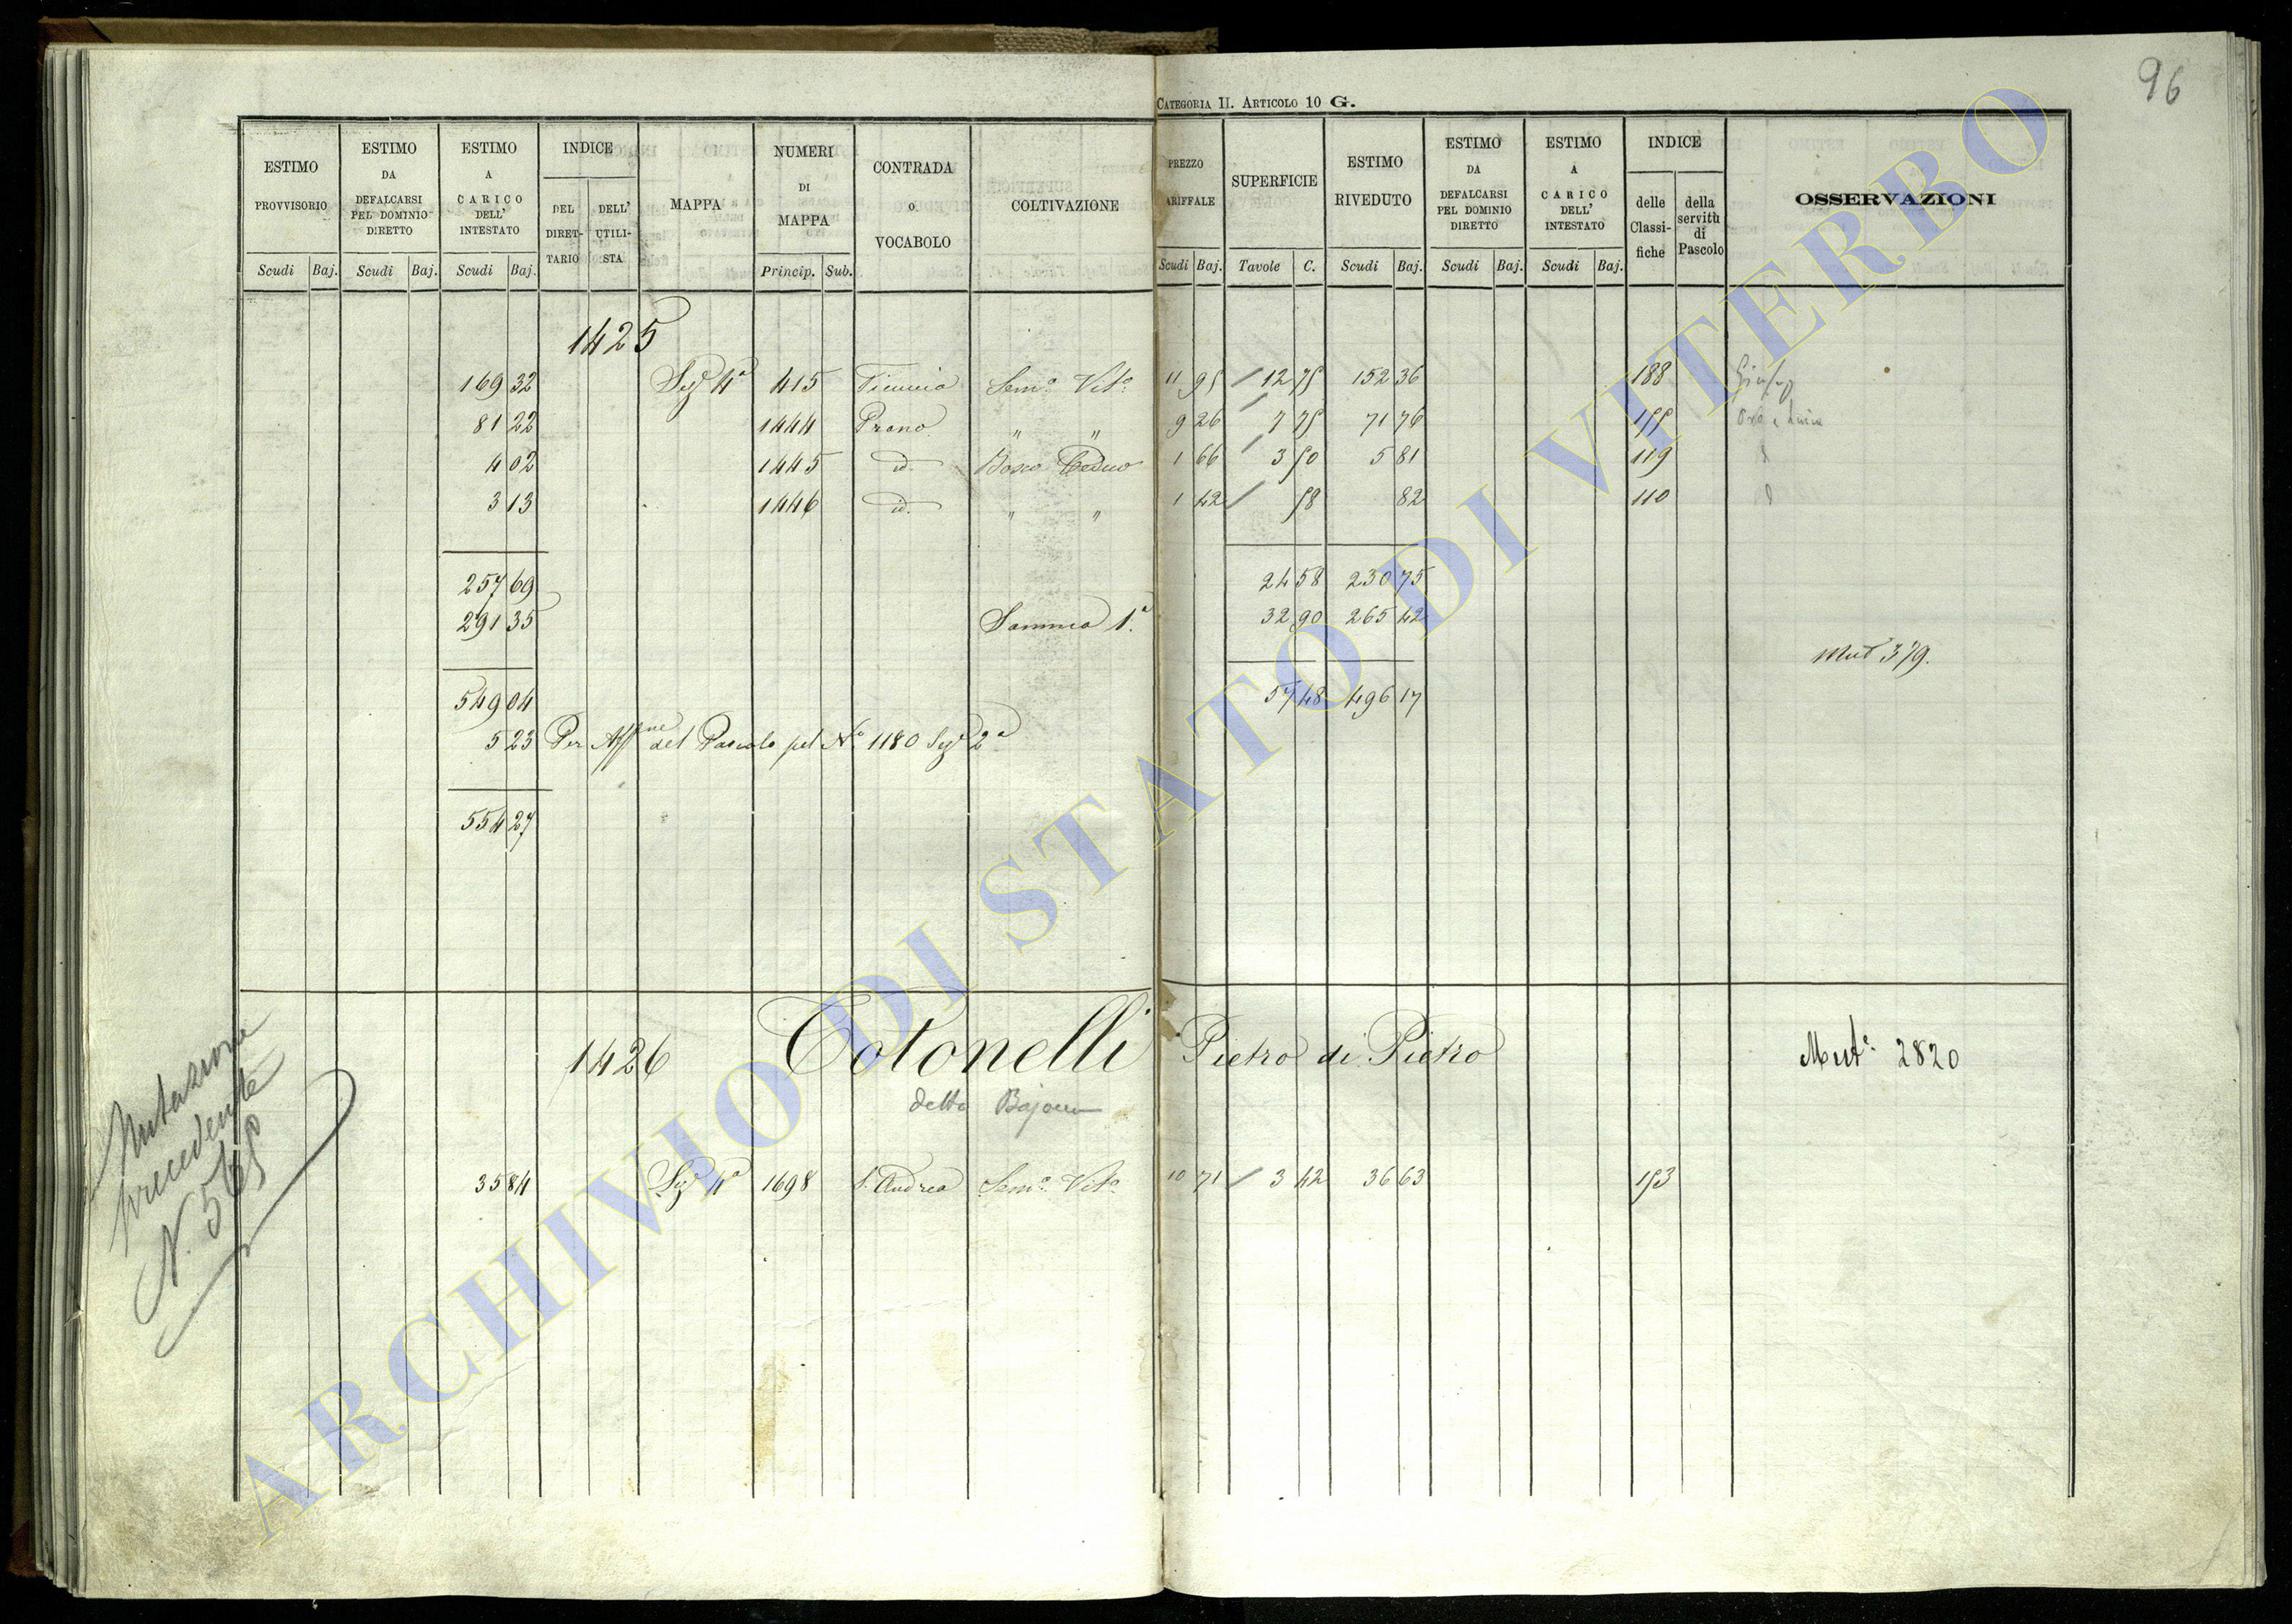 96
CATEGORIA II. ARTICOLO 10 G.
ESTIMO PROVVISORIO Scudi Baj.
ESTIMO DA DEFALCARSI PEL DOMINIO DIRETTO Scudi Baj.
ESTIMO A CARICO DELL' INTESTATO Scudi Baj.
INDICE DEL DIRET-TARIO DELL' UTILI-STA
MAPPA
NUMERI DI MAPPA Princip. Sub.
CONTRADA O VOCABOLO
COLTIVAZIONE
PREZZO ARIFFALE Scudi Baj.
SUPERFICIE Tavole C.
ESTIMO RIVEDUTO Scudi Baj.
ESTIMO DA DEFALCARSI PEL DOMINIO DIRETTO Scudi Baj.
ESTIMO A CARICO DELL' INTESTATO Scudi Baj.
INDICE delle Classi-fiche della servitù di Pascolo
OSSERVAZIONI
1425
169 32 Sez 4ª 415 Semº Vitº 11 95 12 75 152 36 188
81 22 1444 Prano " " 9 26 7 75 71 76 155
4 02 1445 id. Bosco Ceduo 1 66 3 50 5 81 119
3 13 1446 id. " " 1 42 58 82 110
257 69 24 58 230 75
291 35 Somma 1ª 32 90 265 42
Mut 379.
549 04 57 48 496 17
5 23 Per Aff del Pascolo pel Nº 1180 Sezº 2ª
554 27
1426 Totonelli Pietro di Pietro Mutº 2820
detto
35 84 Sez 4ª 1698 S. Andrea Semº Vitº 10 71 3 42 36 63 153
Mutazione
precedente
N. 565
ARCHIVIO DI STATO DI VITERBO